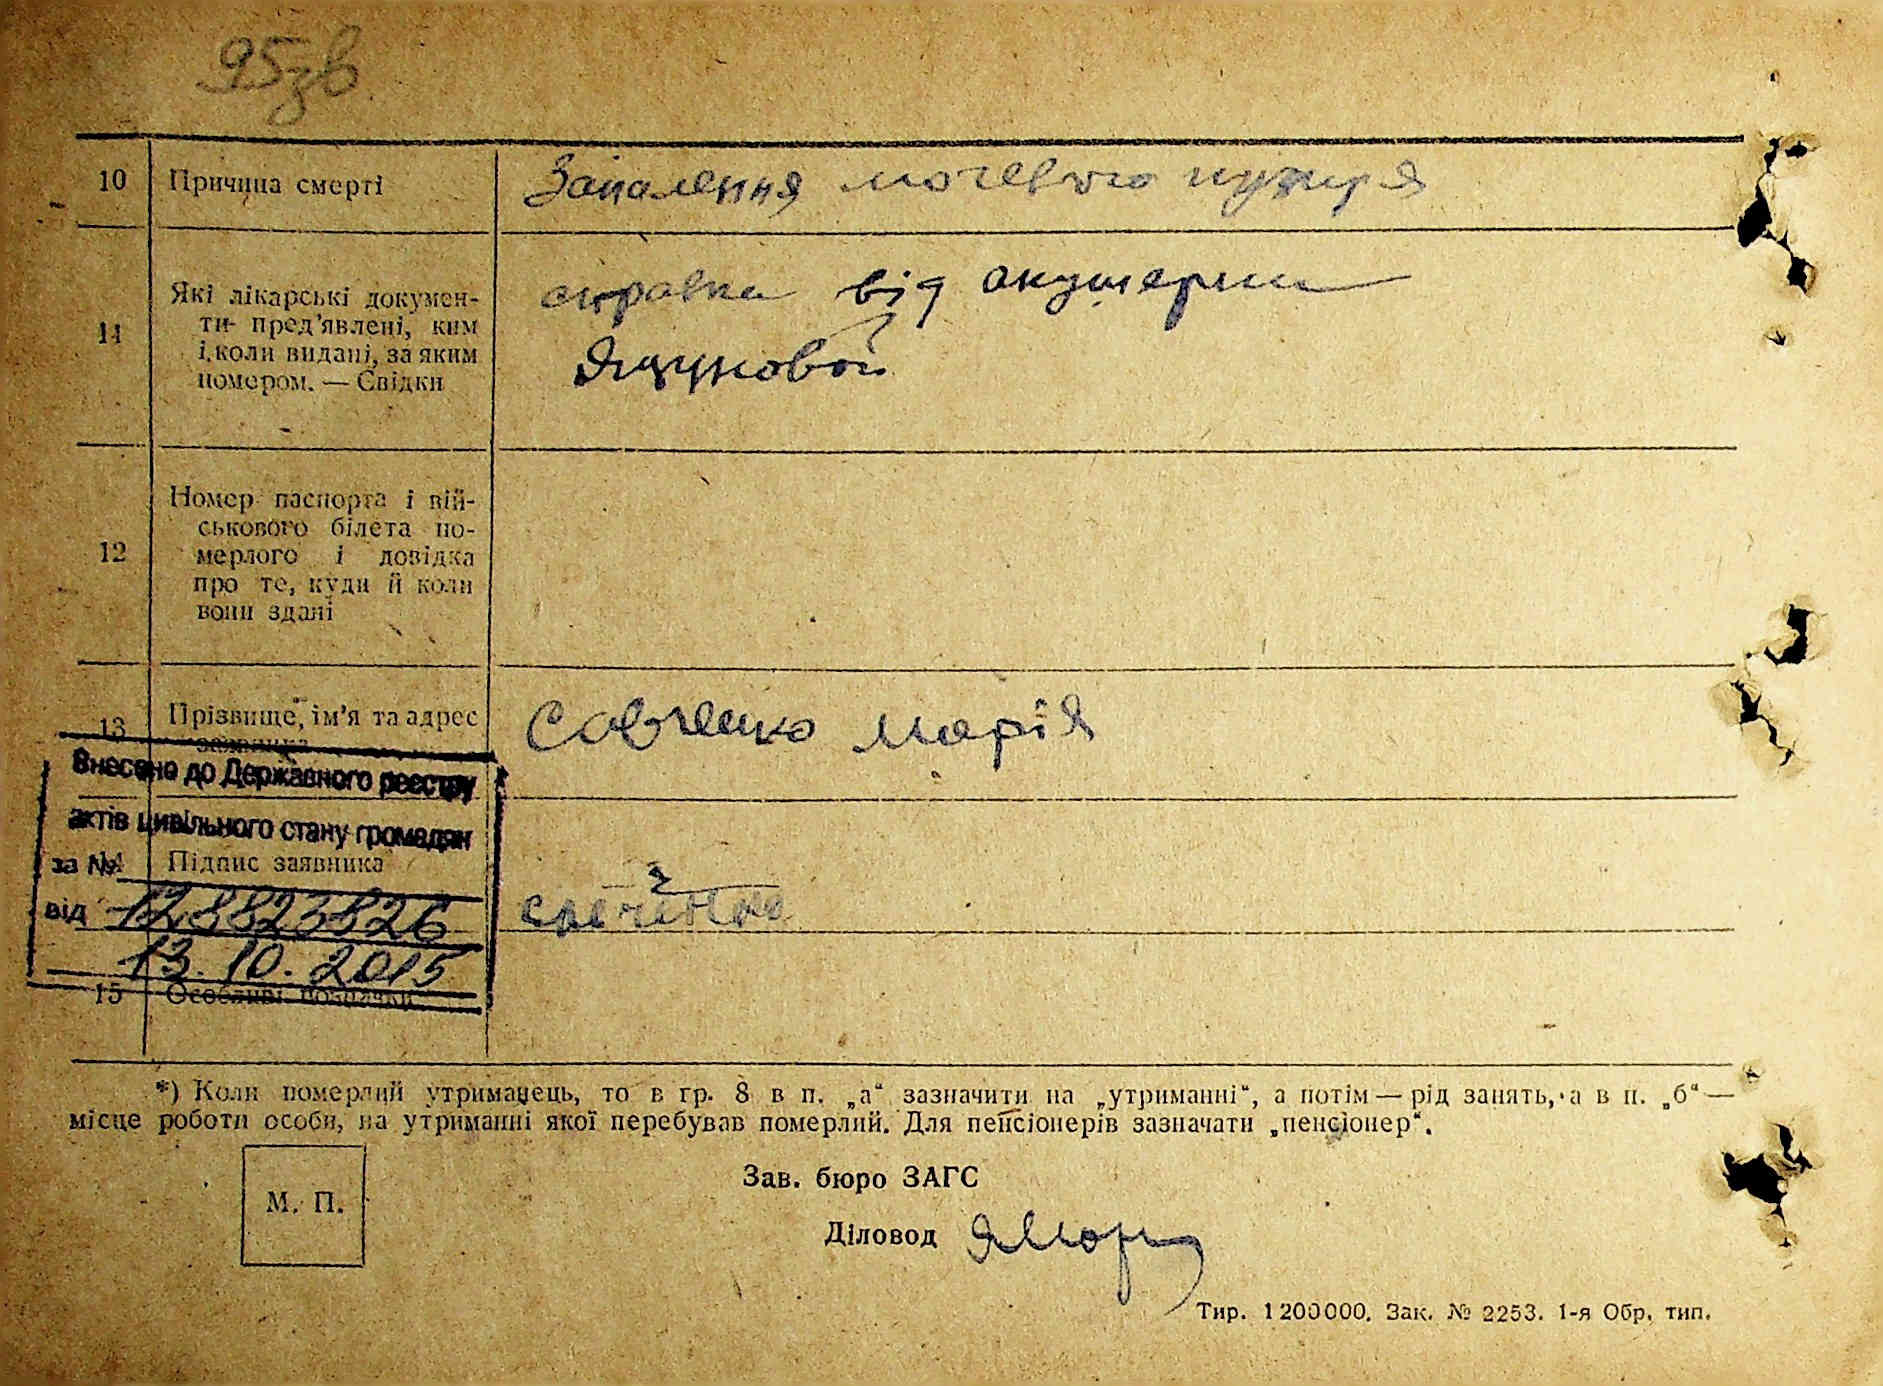 95зв
10 Причина смерті Запалення мочевого пузиря
11 Які лікарські докумен-
ти пред'явлені, ким
і коли видані, за яким
номером. — Свідки
справка від акушерки
Яцуновой
12 Номер паспорта і вій-
ськового білета по-
мерлого і довідка
про те, куди й коли
вони здані
13 Прізвище, ім'я та адрес
заявника
Савченко Марія
Внесено до Державного реєстру
актів цивільного стану громадян
за №
14 Підпис заявника
від 128823826
13.10.2015
15 Особливі позначки
*) Коли померлий утриманець, то в гр. 8 в п. „а“ зазначити на „утриманні“, а потім — рід занять, а в п. „б“ —
місце роботи особи, на утриманні якої перебував померлий. Для пенсіонерів зазначати „пенсіонер“.
М. П.
Зав. бюро ЗАГС
Діловод
Тир. 1200000. Зак. № 2253. 1-я Обр. тип.